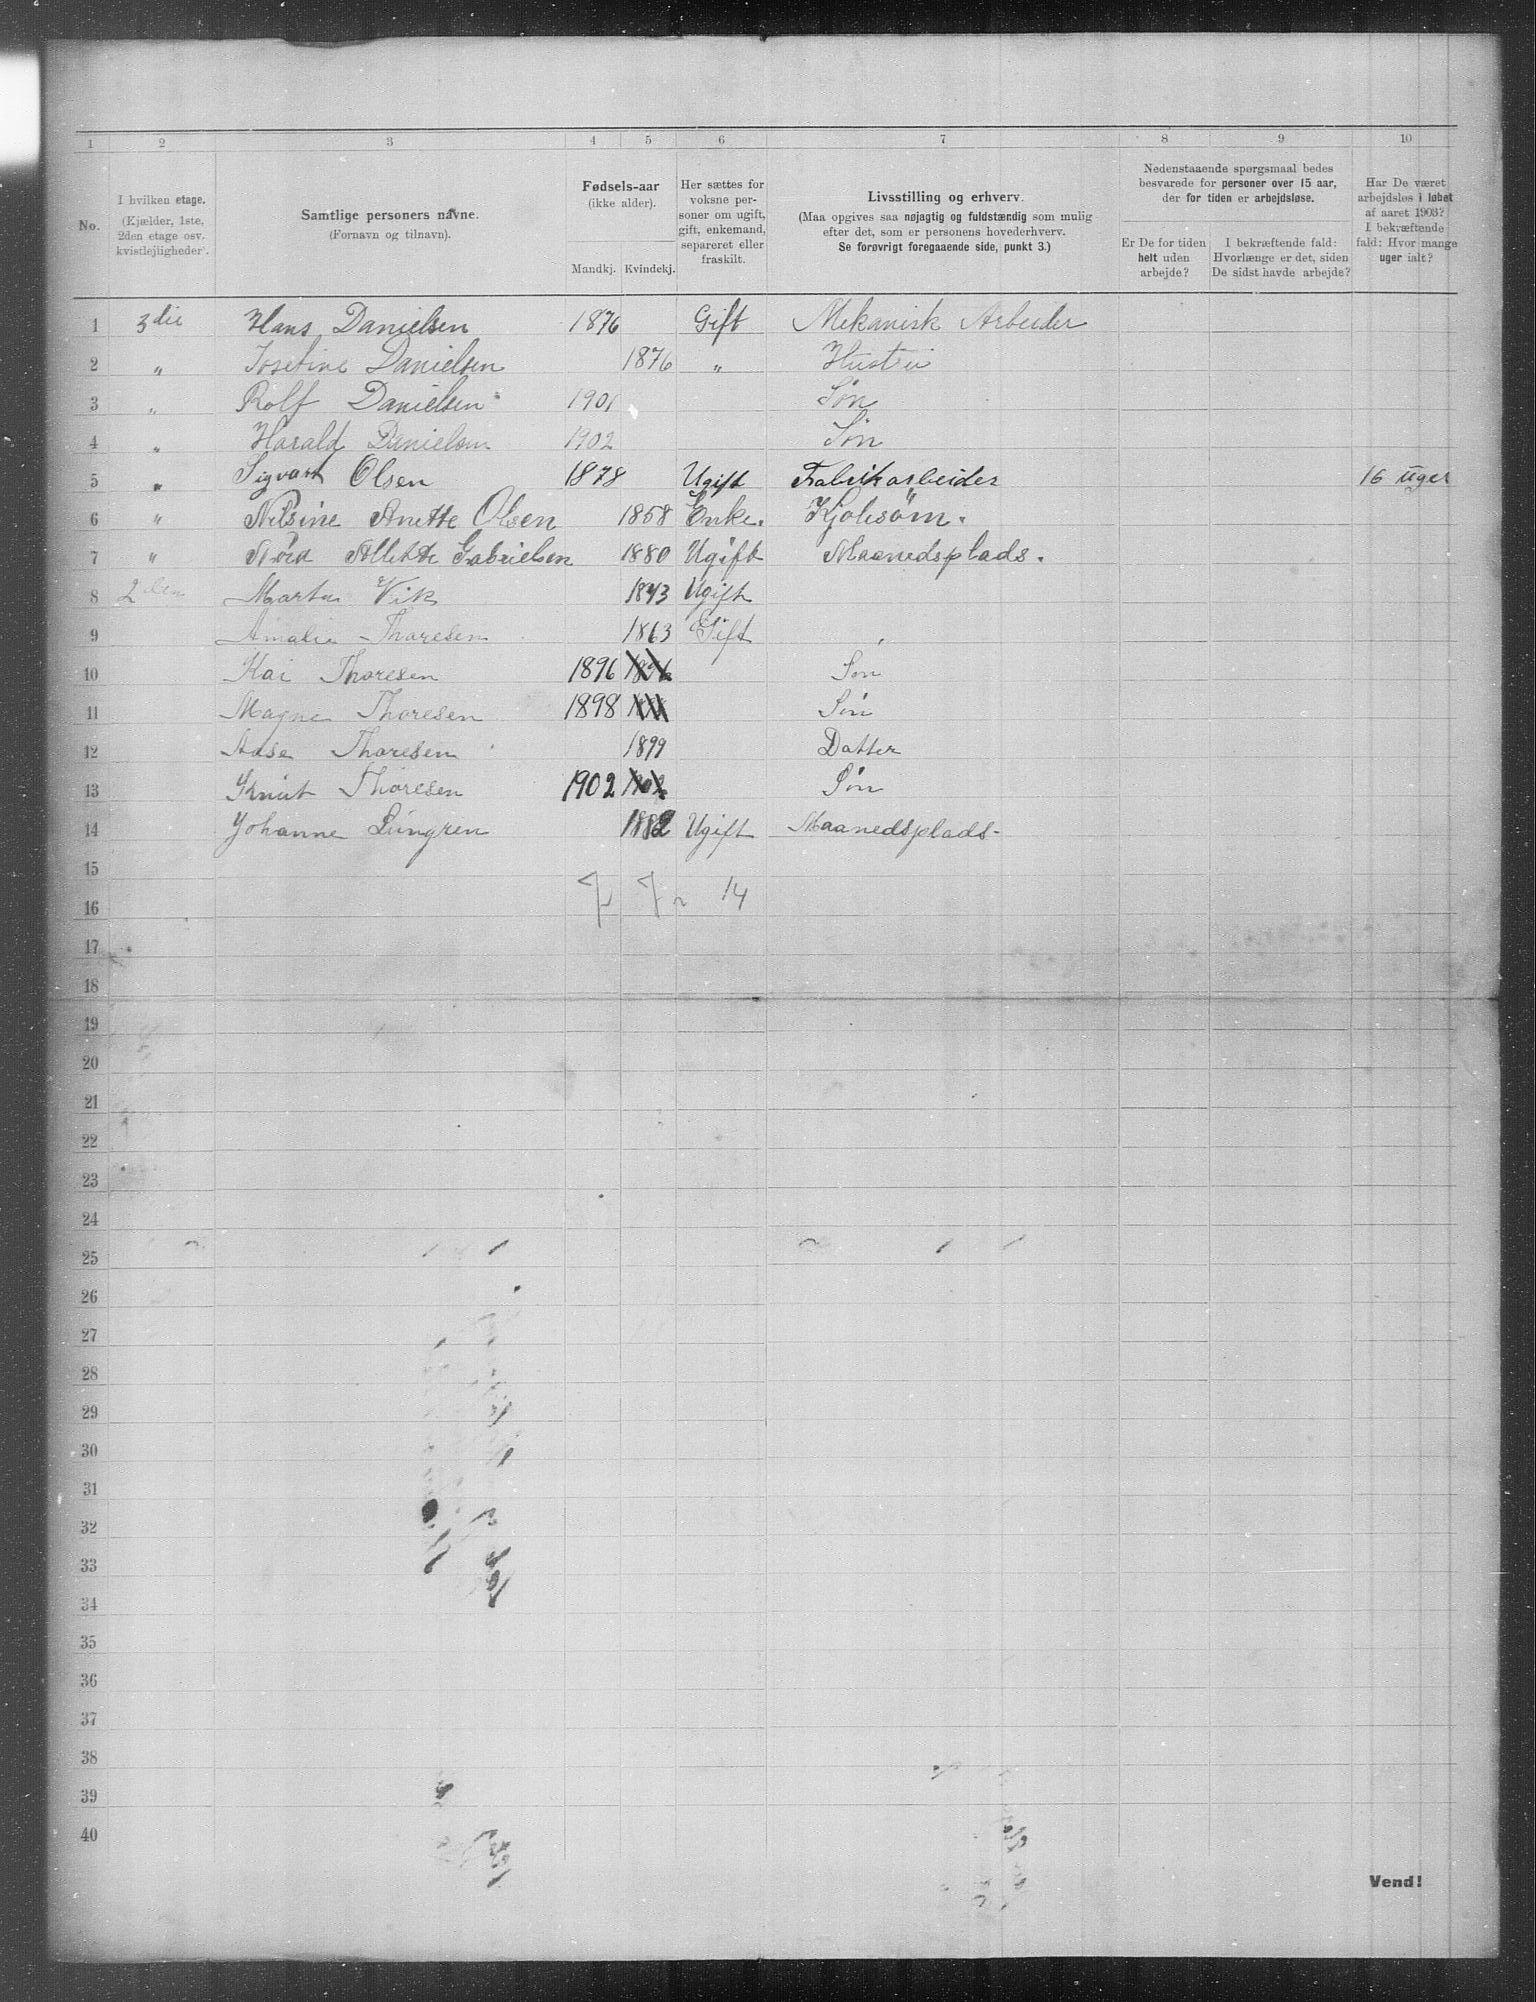 1 2 3 4 5 6 7 8 9 10
No.
I hvilken etage.
(Kjælder, 1ste,
2den etage osv.
kvistlejligheder).
Samtlige personers navne.
(Fornavn og tilnavn).
Fødsels-aar
(ikke alder).
Mandkj. Kvindekj.
Her sættes for
voksne per-
soner om ugift,
gift, enkemand,
separeret eller
fraskilt.
Livsstilling og erhverv.
(Maa opgives saa nøjagtig og fuldstændig som mulig
efter det, som er personens hovederhverv.
Se forøvrigt foregaaende side, punkt 3.)
Nedenstaaende spørgsmaal bedes
besvarede for personer over 15 aar,
der for tiden er arbejdsløse.
Er De for tiden
helt uden
arbejde?
I bekræftende fald:
Hvorlænge er det, siden
De sidst havde arbejde?
Har De været
arbejdsløs i løbet
af aaret 1903?
I bekræftende
fald: Hvor mange
uger ialt?
1 3die Hans Danielsen 1876 Gift Mekanisk Arbeider
2 " Josefine Danielsen 1876 " Hustru
3 " Rolf Danielsen 1901 Søn
4 " Harald Danielsen 1902 Søn
5 " Sigvart Olsen 1878 Ugift Fabrikarbeider 16 uger
6 " Nilsine Anette Olsen 1858 Enke. Kjolesøm.
7 " Allette Gabrielsen 1880 Ugift Maanedsplads.
8 2den Marta Vik 1843 Ugift
9 Amalie Thoresen 1863 Gift
10 Kai Thoresen 1896 1896 Søn
11 Magne Thoresen 1898 Søn
12 Aase Thoresen 1899 Datter
13 Knut Thoresen 1902 1902 Søn
14 Johanne Lungren 1882 Ugift Maanedsplads-
15
7 7 14
16
17
18
19
20
21
22
23
24
25
26
27
28
29
30
31
32
33
34
35
36
37
38
39
40
Vend!